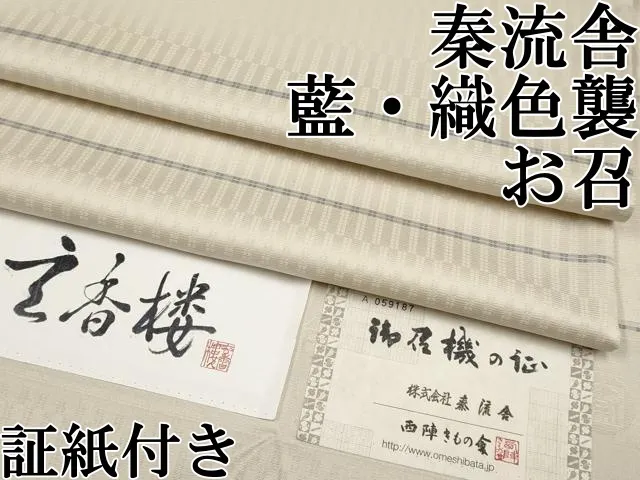 秦流舎
藍・織色襲
お召
玄香楼
A 059187
御召機の証
株式会社 秦流舎
西陣きもの會
http://www.omeshibata.jp
証紙付き